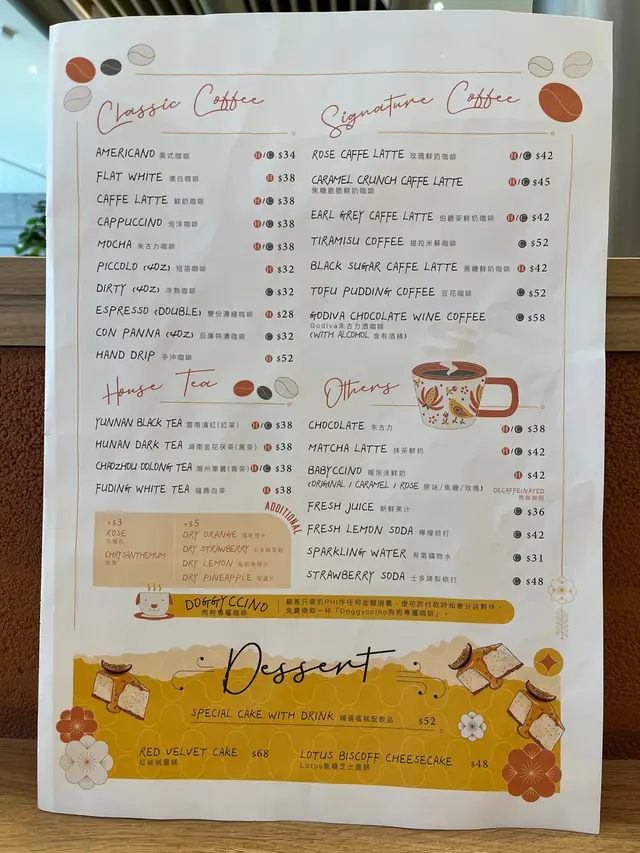 Classic Coffee
AMERICANO 美式咖啡 H/C $34
FLAT WHITE 澳白咖啡 H $38
CAFFE LATTE 鮮奶咖啡 H/C $38
CAPPUCCINO 泡沫咖啡 H/C $38
MOCHA 朱古力咖啡 H/C $38
PICCOLO (4OZ) 短笛咖啡 H $32
DIRTY (4OZ) 冷熱咖啡 C $32
ESPRESSO (DOUBLE) 雙份濃縮咖啡 H $28
CON PANNA (4OZ) 忌廉特濃咖啡 C $32
HAND DRIP 手沖咖啡 H $52
Signature Coffee
ROSE CAFFE LATTE 玫瑰鮮奶咖啡 H/C $42
CARAMEL CRUNCH CAFFE LATTE H/C $45
焦糖脆脆鮮奶咖啡
EARL GREY CAFFE LATTE 伯爵茶鮮奶咖啡 H/C $42
TIRAMISU COFFEE 提拉米蘇咖啡 C $52
BLACK SUGAR CAFFE LATTE 黑糖鮮奶咖啡 H $42
TOFU PUDDING COFFEE 豆花咖啡 C $52
GODIVA CHOCOLATE WINE COFFEE C $58
Godiva朱古力酒咖啡
(WITH ALCOHOL 含有酒精)
House Tea
YUNNAN BLACK TEA 雲南滇紅(紅茶) H/C $38
HUNAN DARK TEA 湖南金花茯茶(黑茶) H $38
CHAOZHOU OOLONG TEA 潮州單叢(青茶) H/C $38
FUDING WHITE TEA 福鼎白茶 H $38
ADDITIONAL
+$3
ROSE
玫瑰花
CHRYSANTHEMUM
+$5
DRY ORANGE
DRY STRAWBERRY
DRY LEMON
DRY PINEAPPLE
Others
CHOCOLATE 朱古力 H/C $38
MATCHA LATTE 抹茶鮮奶 H/C $42
BABYCCINO 暖泡沫鮮奶 H $42
(ORIGINAL / CARAMEL / ROSE 原味/焦糖/玫瑰) DECAFFEINATED
無咖啡因
FRESH JUICE 新鮮果汁 C $36
FRESH LEMON SODA 檸檬梳打 C $42
SPARKLING WATER 有氣礦物水 C $31
STRAWBERRY SODA 士多啤梨梳打 C $48
DOGGYCCINO
狗狗專屬咖啡
顧客只需於PHI作任何金額消費，便可於付款時知會分店夥伴，
免費換取一杯「Doggyccino狗狗專屬咖啡」。
Dessert
SPECIAL CAKE WITH DRINK 精選蛋糕配飲品 $52
RED VELVET CAKE $68
紅絲絨蛋糕
LOTUS BISCOFF CHEESECAKE $48
Lotus焦糖芝士脆餅